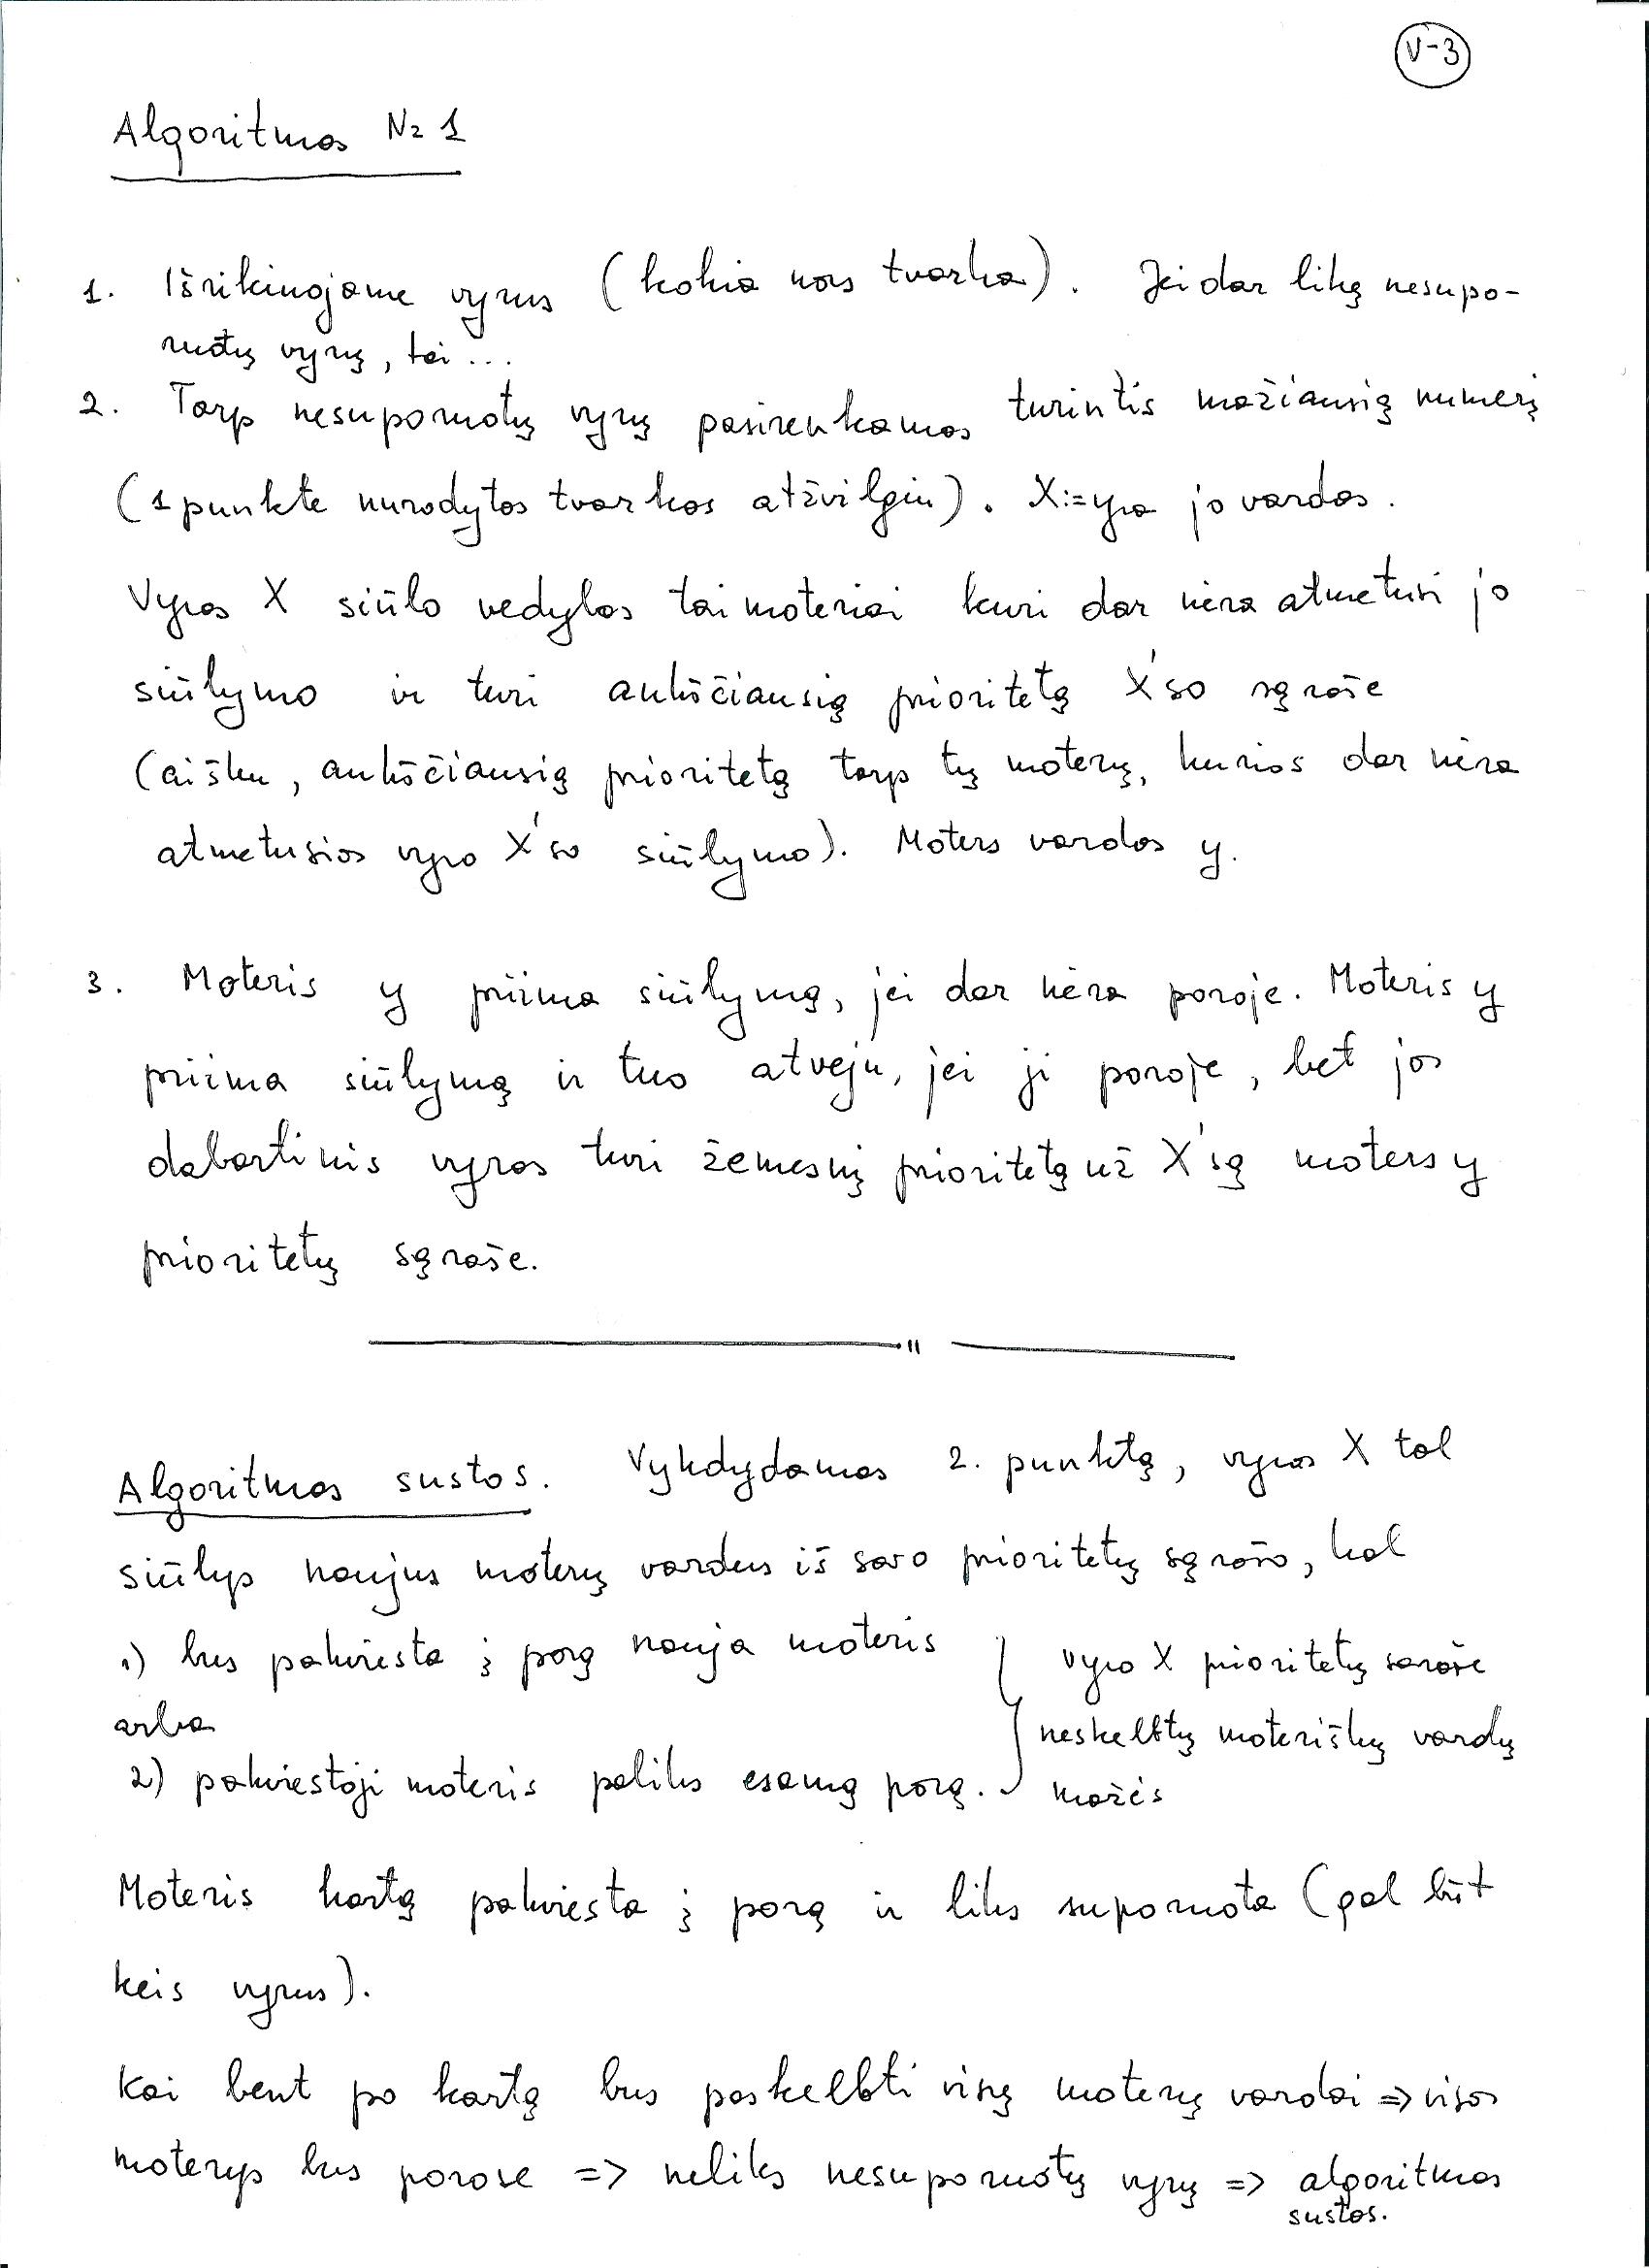 V-3
Algoritmas Nr 1
1. Išrikiuojame vyrus (kokia nors tvarka). Jei dar likę nesupo-
ruotų vyrų, tai ...
2. Tarp nesuporuotų vyrų pasirenkamas turintis mažiausią numerį
(1 punkte nurodytos tvarkos atžvilgiu). X:=yra jo vardas.
Vyras X siūlo vedybas tai moteriai kuri dar nėra atmetusi jo
siūlymo ir turi aukščiausią prioritetą X'so sąraše
(aišku, aukščiausią prioritetą tarp tų moterų, kurios dar nėra
atmetusios vyro X'so siūlymo). Moters vardas y.
3. Moteris y priima siūlymą, jei dar nėra poroje. Moteris y
priima siūlymą ir tuo atveju, jei ji poroje, bet jos
dabartinis vyras turi žemesnį prioritetą už X'są moters y
prioritetų sąraše.
Algoritmas sustos. Vykdydamas 2. punktą, vyras X tol
siūlys naujus moterų vardus iš savo prioritetų sąrašo, kol
1) bus pakviesta į porą nauja moteris
arba
2) pakviestoji moteris paliks esamą porą.
vyro X prioritetų sąraše
neskelbtų moteriškų vardų
mažės
Moteris kartą pakviesta į porą ir liks suporuota (gal būt
keis vyrus).
Kai bent po kartą bus paskelbti visų moterų vardai => visos
moterys bus porose => neliks nesuporuotų vyrų => algoritmas
sustos.